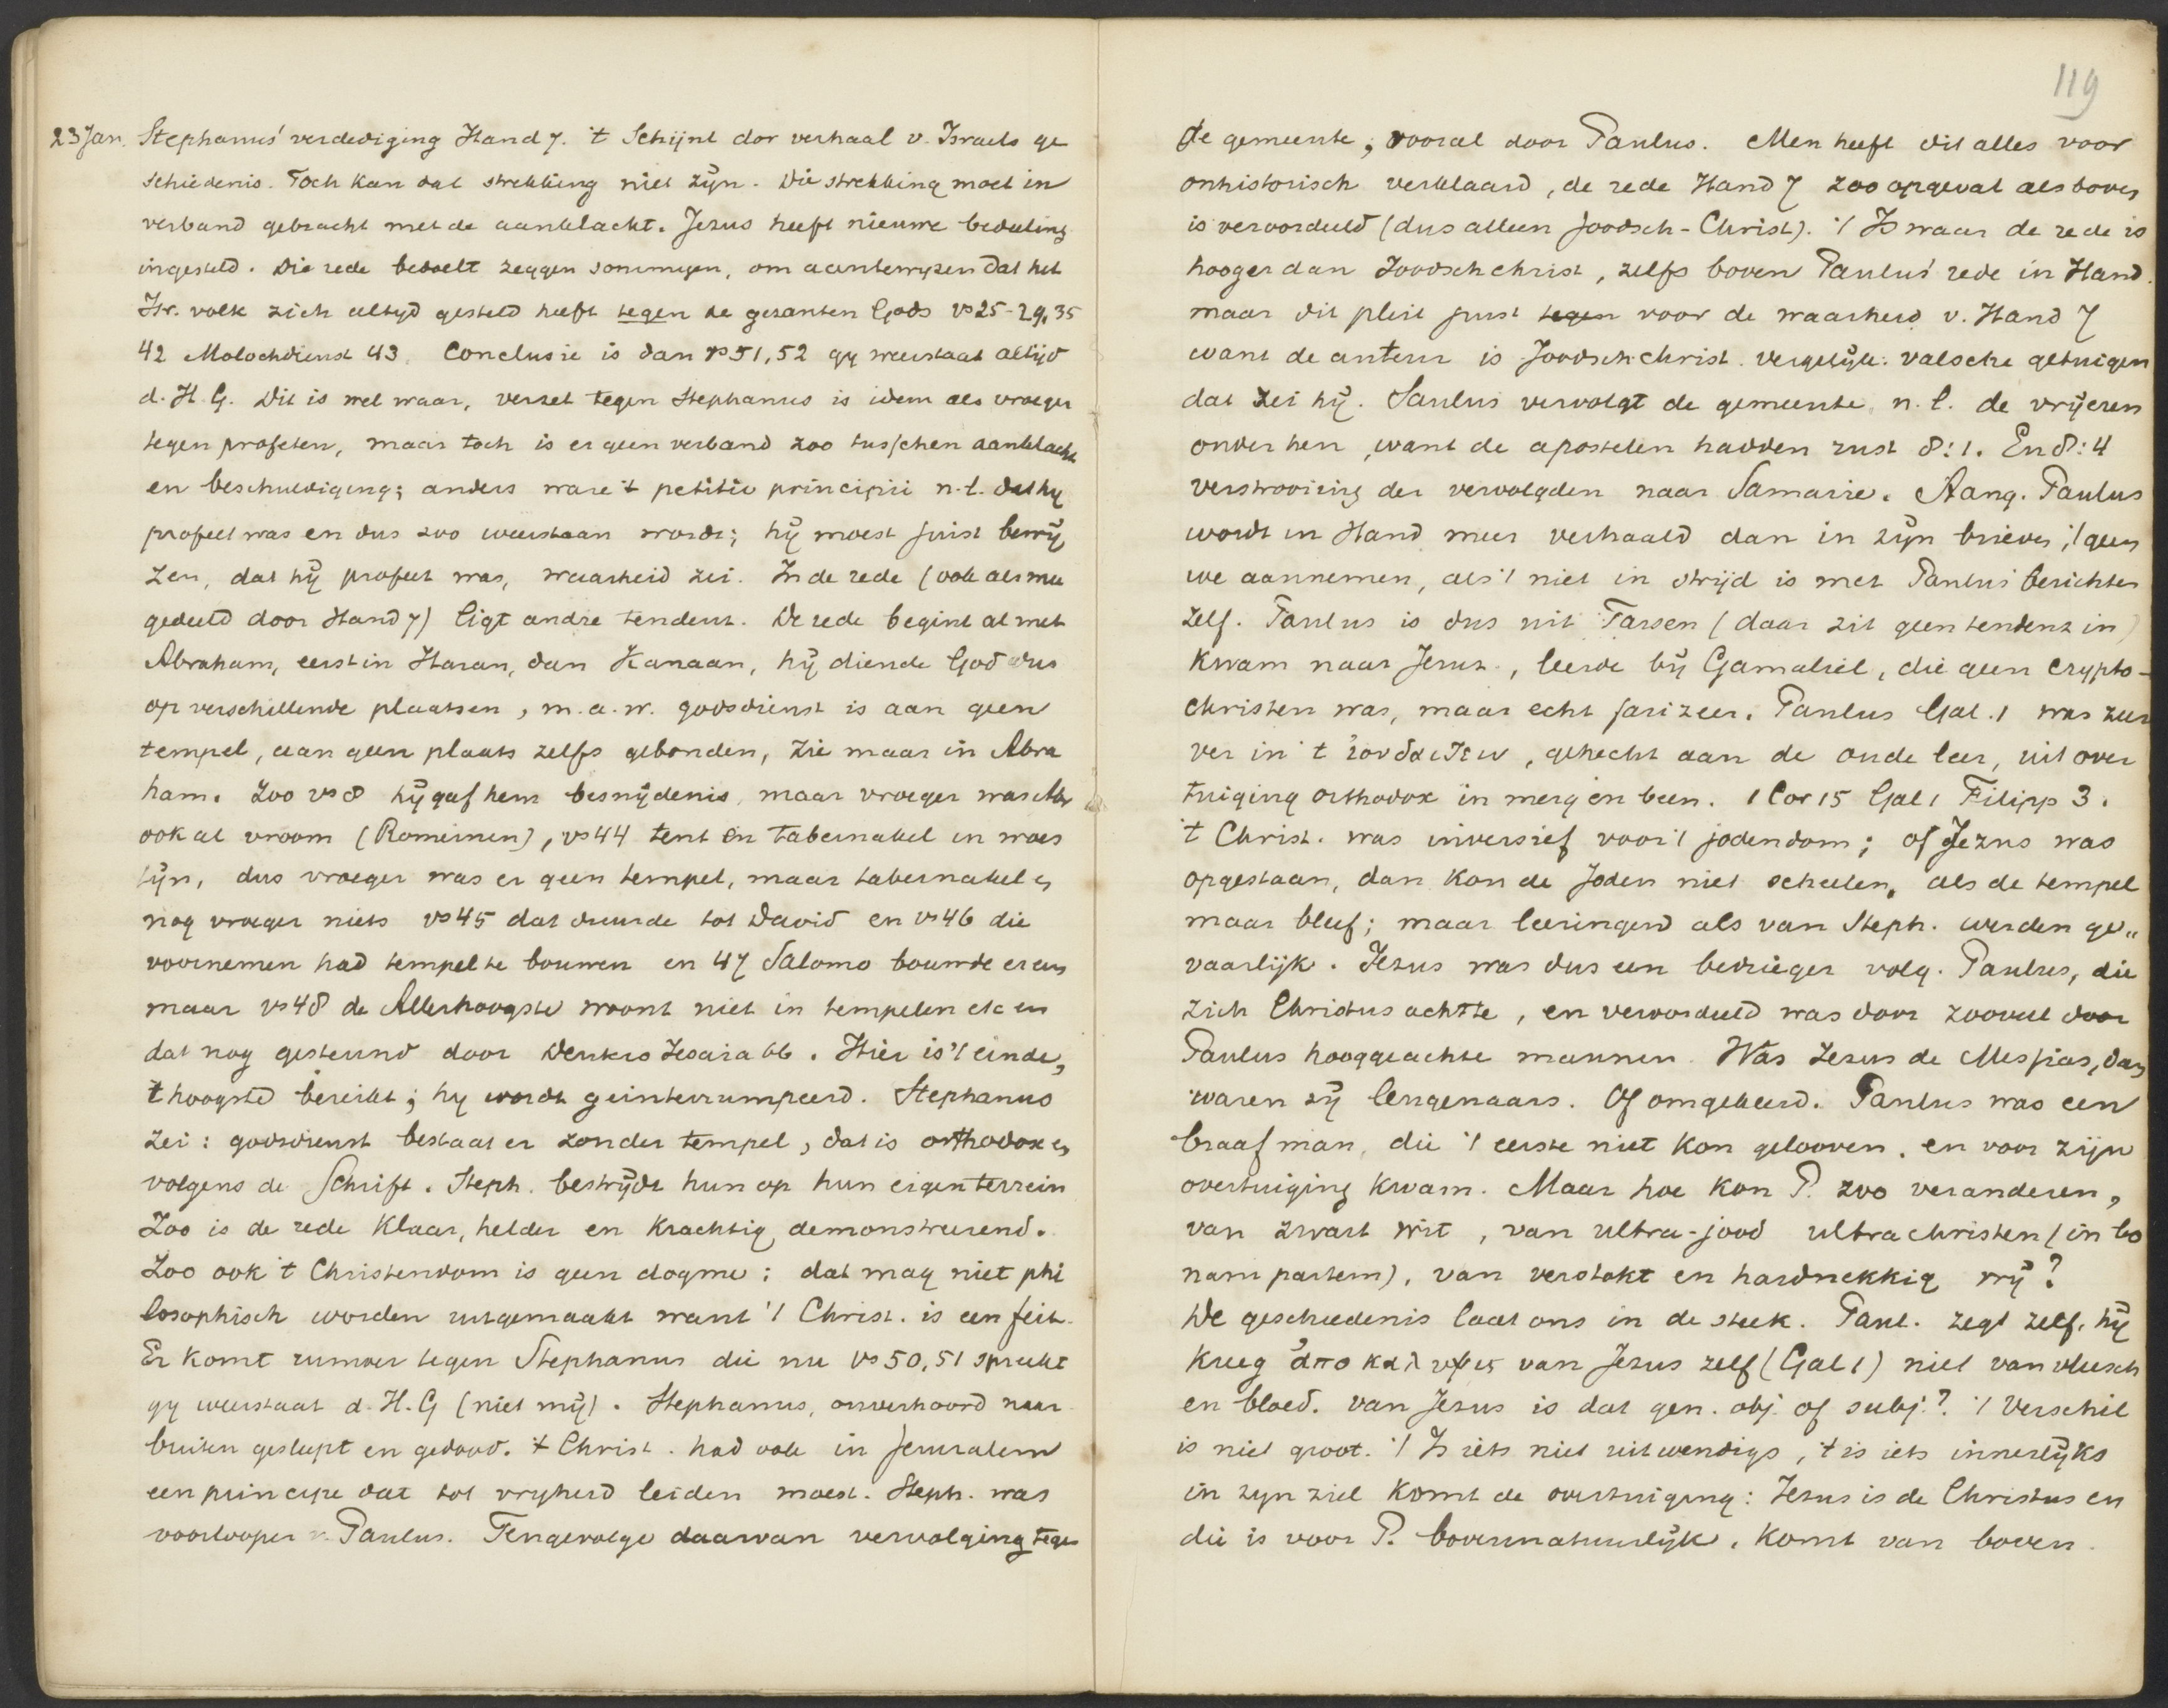 23 Jan. Stephanus' verdediging Hand 7. 't Schijnt dor verhaal v. Israels ge
schiedenis. Toch kan dat strekking niet zijn. Die strekking moet in
verband gebracht met de aanklacht. Jezus heeft nieuwe bedeeling
ingesteld. Die rede bedoelt zeggen sommigen, om aantewyzen dat het
Isr. volk zich altyd gesteld heeft tegen de gezanten Gods vs 25-29, 35
42 Molochdienst 43. Conclusie is dan vs 51, 52 gy weerstaat altijd
d. H. G. Dit is wel waar, verzet tegen Stephanus is idem als vroeger
tegen profeten, maar toch is er geen verband zoo tusschen aanklacht
en beschuldiging; anders ware 't petitio principii n.l. dat hy
profeet was en dus zoo weerstaan wordt; hij moest juist bewij
zen, dat hij profeet was, waarheid zei. In de rede (ook als mee
gedeeld door Hand 7) ligt andre tendenz. De rede begint al met
Abraham, eerst in Haran, dan Kanaan, hij diende God dus
op verschillende plaatsen, m.a.w. godsdienst is aan geen
tempel, aan geen plaats zelfs gebonden, zie maar in Abra
ham. Zoo vs 8 hij gaf hem besnijdenis, maar vroeger was Abr
ook al vroom (Romeinen), vs 44 tent en tabernakel in woes
tijn, dus vroeger was er geen tempel, maar tabernakel en
nog vroeger niets vs 45 dat duurde tot David en vs 46 die
voornemen had tempel te bouwen en 47 Salomo bouwde er een
maar vs 48 de Allerhoogste woont niet in tempelen etc en
dat nog gesteund door Deutero Jesaia 66. Hier is 't einde,
't hoogste bereikt; hy wordt geinterrumpeerd. Stephanus
zei: godsdienst bestaat er zonder tempel, dat is orthodox en
volgens de Schrift. Steph. bestrijdt hun op hun eigen terrein
Zoo is de rede klaar, helder en krachtig demonstreerend.
Zoo ook 't Christendom is geen dogme; dat mag niet phi
losophisch worden uitgemaakt want 't Christ. is een feit.
Er komt rumoer tegen Stephanus die nu vs 50, 51 spreekt
gy weerstaat d. H. G (niet mij). Stephanus, onverhoord naar
buiten gesleept en gedood. 't Christ. had ook in Jeruzalem
een principe dat tot vryheid leiden moest. Steph. was
voorlooper v. Paulus. Tengevolge daarvan vervolging tegen
119
de gemeente, vooral door Paulus. Men heeft dit alles voor
onhistorisch verklaard, de rede Hand 7 zoo opgevat als boven
is veroordeeld (dus alleen Joodsch-Christ). 't Is waar de rede is
hooger dan Joodschchrist, zelfs boven Paulus' rede in Hand.
maar dit pleit juist tegen voor de waarheid v. Hand 7
want de auteur is Joodschchrist. vergelijk: valsche getuigen
dat zei hij. Saulus vervolgt de gemeente, n.l. de vrijeren
onder hen, want de apostelen hadden rust 8:1. En 8:4
verstrooiing der vervolgden naar Samarie. Aang. Paulus
wordt in Hand meer verhaald dan in zijn brieven; 't geen
we aannemen, als 't niet in strijd is met Paulus' berichten
zelf. Paulus is dus uit Tarsen (daar zit geen tendenz in)
kwam naar Jeruz., leerde bij Gamaliël, die geen crypto-
christen was, maar echt farizeer. Paulus Gal. 1 was zeer
ver in 't ἰουδαιζειν, gehecht aan de oude leer, uit over
tuiging orthodox in merg en been. 1 Cor 15 Gal 1 Filipp 3.
't Christ. was inversief voor 't jodendom; of Jezus was
opgestaan, dan kon de Joden niet scheelen, als de tempel
maar bleef; maar leeringen als van Steph. werden ge„
vaarlijk. Jezus was dus een bedrieger volg. Paulus, die
zich Christus achtte, en veroordeeld was door zooveel door
Paulus hooggeachte mannen. Was Jezus de Messias, dan
waren zij leugenaars. Of omgekeerd. Paulus was een
braaf man, die 't eerste niet kon gelooven, en voor zijn
overtuiging kwam. Maar hoe kon P. zoo veranderen,
van zwart wit, van ultra-jood ultrachristen (in bo
nam partem), van verstokt en hardnekkig vrij?
De geschiedenis laat ons in de steek. Paul. zegt zelf, hij
kreeg ἀποκαλυψις van Jezus zelf (Gal 1) niet van vleesch
en bloed. van Jezus is dat gen. obj. of subj.? 't Verschil
is niet groot. 't Is iets niet uitwendigs, 't is iets innerlijks
in zyn ziel komt de overtuiging: Jezus is de Christus en
die is voor P. bovennatuurlijk, komt van boven.